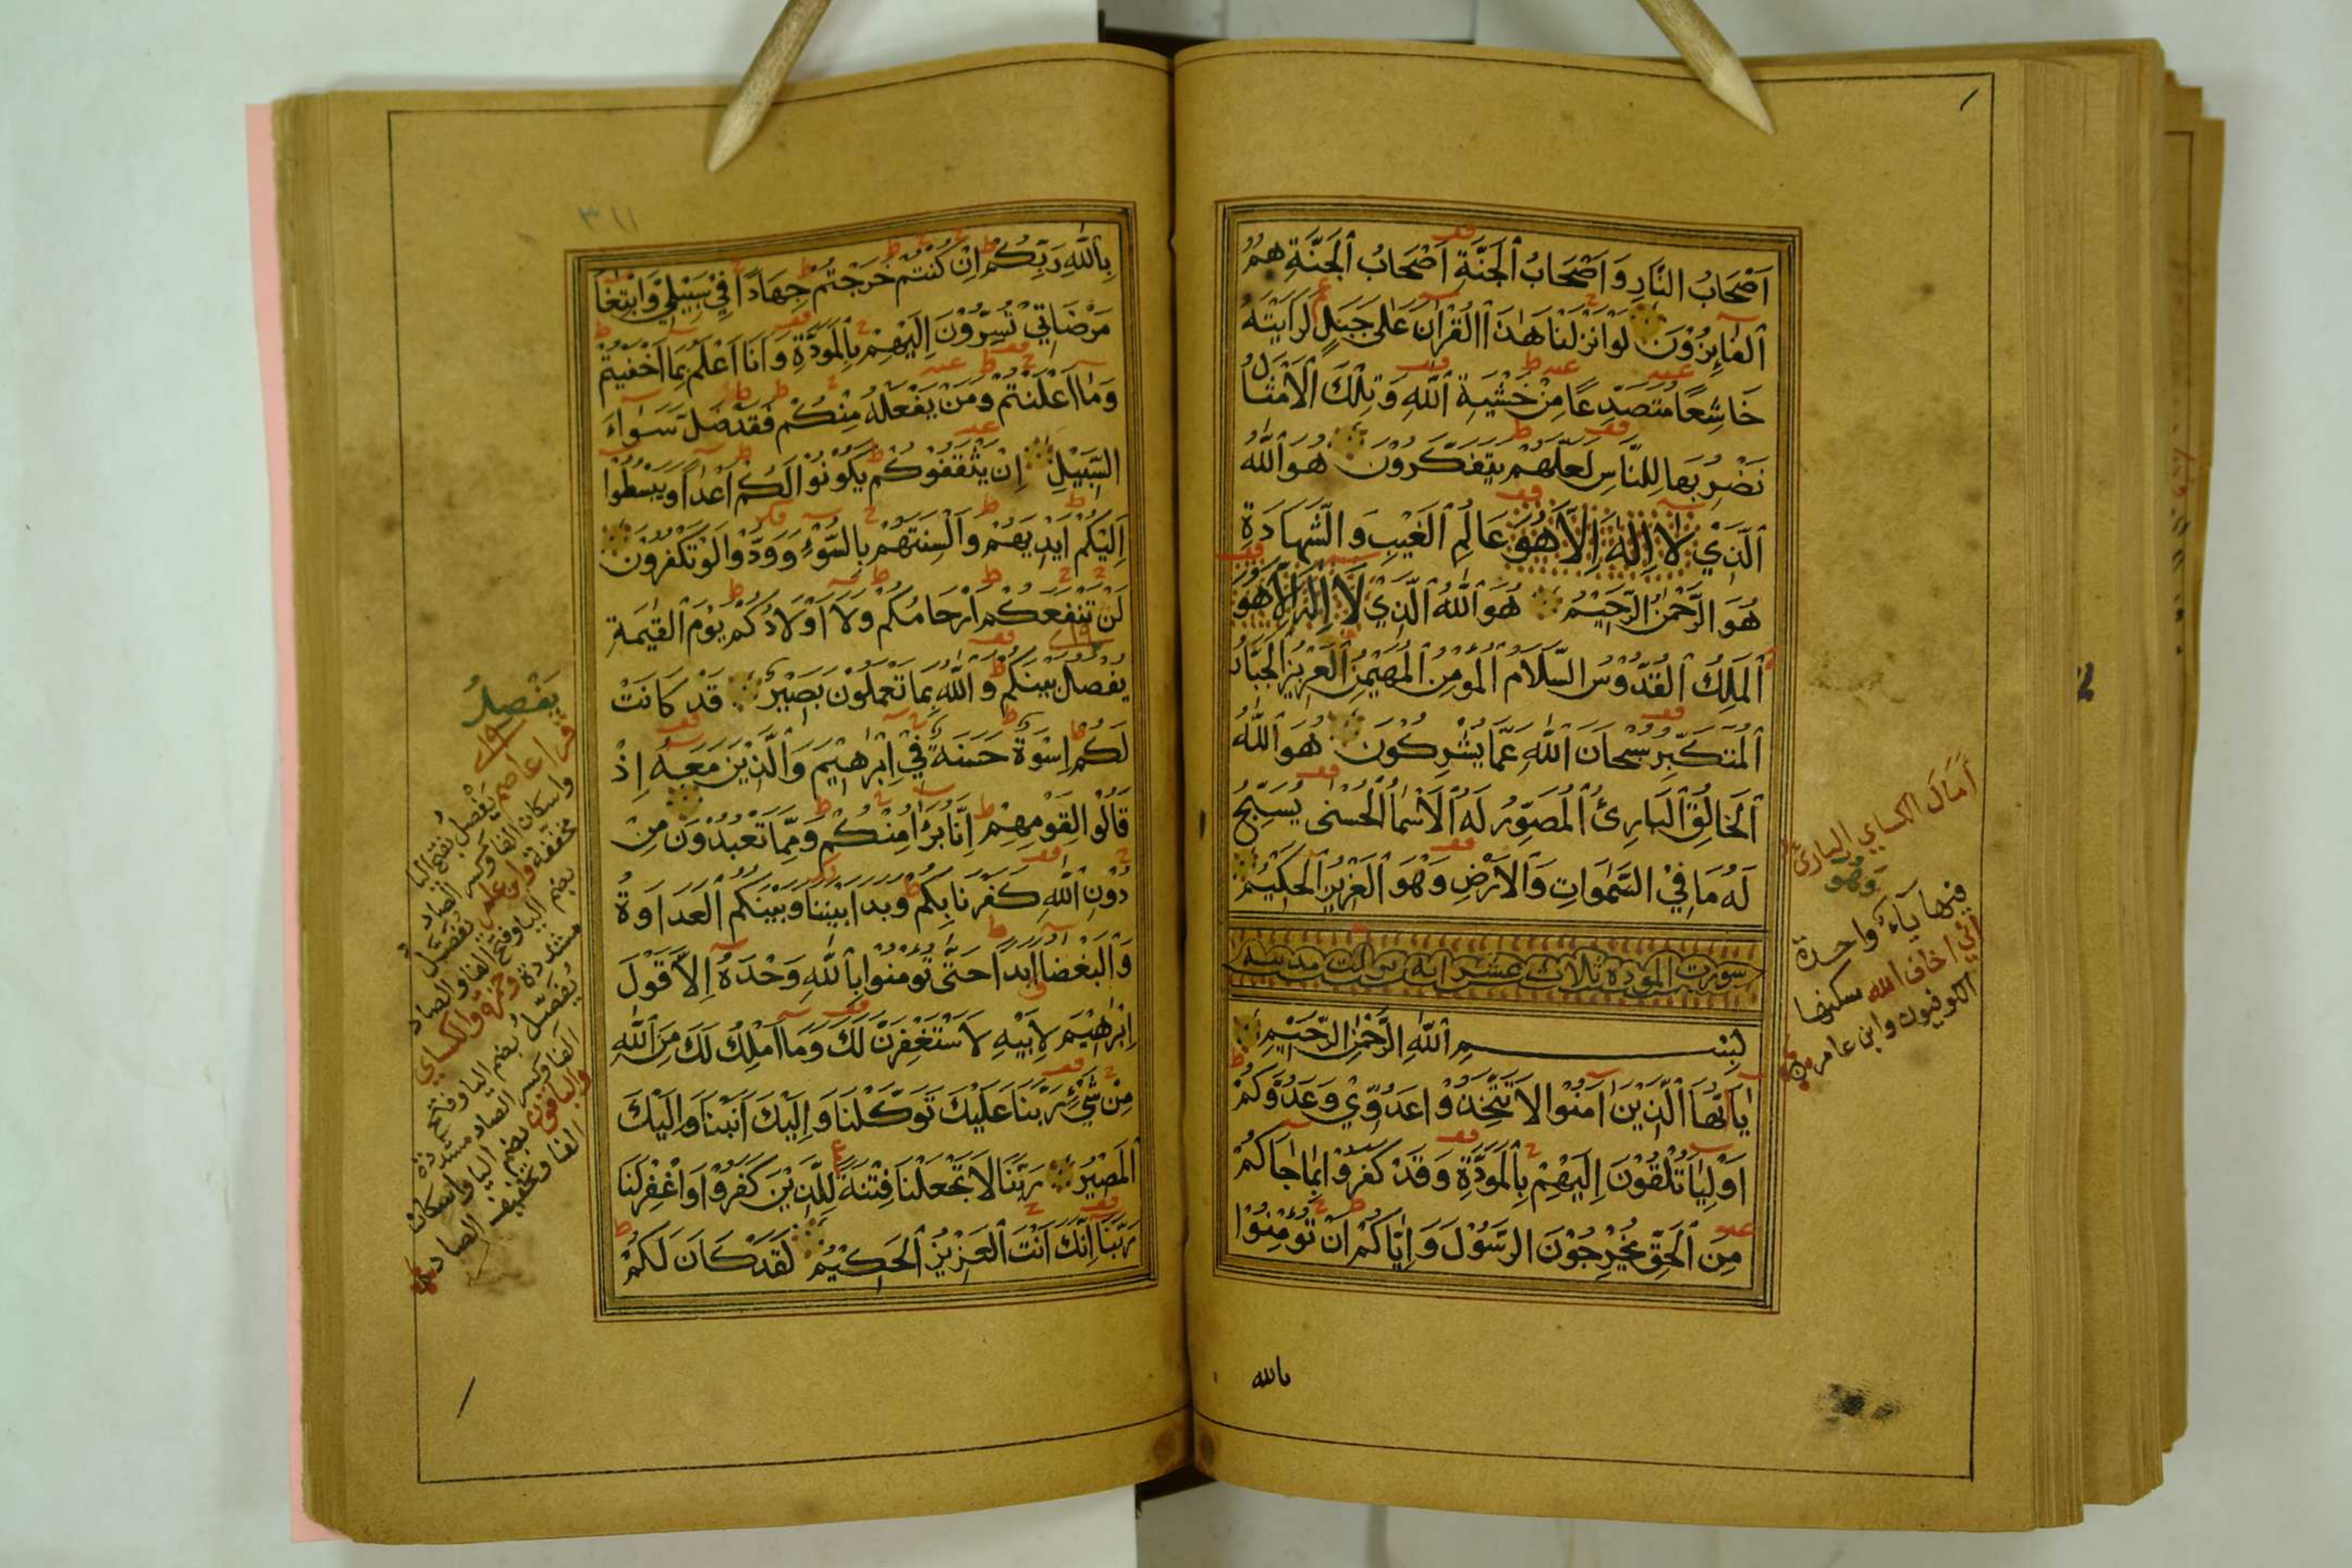 اَصْحَابُ النَّارِ وَاَصْحَابُ الْجَنَّةِ اَصْحَابُ الْجَنَّةِ هُمُ
الْفَايِزُوْنَ لَوْ اَنْزَلْنَا هٰذَا الْقُرْاٰنَ عَلٰى جَبَلٍ لَرَاَيْتَهُ
خَاشِعًا مُتَصَدِّعًا مِنْ خَشْيَةِ اللّٰهِ وَتِلْكَ الْاَمْثَالُ
نَضْرِبُهَا لِلنَّاسِ لَعَلَّهُمْ يَتَفَكَّرُوْنَ هُوَ اللّٰهُ
الَّذِيْ لَا اِلٰهَ اِلَّا هُوَ عَالِمُ الْغَيْبِ وَالشَّهَادَةِ
هُوَ الرَّحْمٰنُ الرَّحِيْمُ هُوَ اللّٰهُ الَّذِيْ لَا اِلٰهَ اِلَّا هُوَ
الْمَلِكُ الْقُدُّوْسُ السَّلَامُ الْمُؤْمِنُ الْمُهَيْمِنُ الْعَزِيْزُ الْجَبَّارُ
الْمُتَكَبِّرُ سُبْحَانَ اللّٰهِ عَمَّا يُشْرِكُوْنَ هُوَ اللّٰهُ
الْخَالِقُ الْبَارِئُ الْمُصَوِّرُ لَهُ الْاَسْمَا الْحُسْنٰى يُسَبِّحُ
لَهُ مَا فِيْ السَّمٰوَاتِ وَالْاَرْضِ وَهُوَ الْعَزِيْزُ الْحَكِيْمُ
سورت المودة ثلاث عشر اية مدنية
بِسْمِ اللّٰهِ الرَّحْمٰنِ الرَّحِيْمِ
يٰاَيُّهَا الَّذِيْنَ اٰمَنُوْا لَا تَتَّخِذُوْا عَدُوِّيْ وَعَدُوَّكُمْ
اَوْلِيَا تُلْقُوْنَ اِلَيْهِمْ بِالْمَوَدَّةِ وَقَدْ كَفَرُوْا بِمَا جَاكُمْ
مِنَ الْحَقِّ يُخْرِجُوْنَ الرَّسُوْلَ وَاِيَّاكُمْ اَنْ تُؤْمِنُوْا
بالله
اَمَالَ الكساي البارئ
وَهُوَ
فيها ياءٌ واحدة
اني اخاف الله سكنها
الكوفيون وابن عامر
٣١١
بِاللّٰهِ رَبِّكُمْ اِنْ كُنْتُمْ خَرَجْتُمْ جِهَادًا فِيْ سَبِيْلِيْ وَابْتِغَا
مَرْضَاتِيْ تُسِرُّوْنَ اِلَيْهِمْ بِالْمَوَدَّةِ وَاَنَا اَعْلَمُ بِمَا اَخْفَيْتُمْ
وَمَا اَعْلَنْتُمْ وَمَنْ يَفْعَلْهُ مِنْكُمْ فَقَدْ ضَلَّ سَوَاءَ
السَّبِيْلِ اِنْ يَثْقَفُوْكُمْ يَكُوْنُوْا لَكُمْ اَعْدَا وَيَبْسُطُوْا
اِلَيْكُمْ اَيْدِيَهُمْ وَاَلْسِنَتَهُمْ بِالسُّوْءِ وَوَدُّوْا لَوْ تَكْفُرُوْنَ
لَنْ تَنْفَعَكُمْ اَرْحَامُكُمْ وَلَا اَوْلَادُكُمْ يَوْمَ الْقِيٰمَةِ
يَفْصِلُ بَيْنَكُمْ وَاللّٰهُ بِمَا تَعْمَلُوْنَ بَصِيْرٌ قَدْ كَانَتْ
لَكُمْ اِسْوَةٌ حَسَنَةٌ فِيْ اِبْرٰهِيْمَ وَالَّذِيْنَ مَعَهُ اِذْ
قَالُوْا لِقَوْمِهِمْ اِنَّا بُرَاءُ مِنْكُمْ وَمِمَّا تَعْبُدُوْنَ مِنْ
دُوْنِ اللّٰهِ كَفَرْنَا بِكُمْ وَبَدَا بَيْنَنَا وَبَيْنَكُمُ الْعَدَاوَةُ
وَالْبَغْضَا اَبَدًا حَتّٰى تُؤْمِنُوْا بِاللّٰهِ وَحْدَهُ اِلَّا قَوْلَ
اِبْرٰهِيْمَ لِاَبِيْهِ لَاَسْتَغْفِرَنَّ لَكَ وَمَا اَمْلِكُ لَكَ مِنَ اللّٰهِ
مِنْ شَيْءٍ رَبَّنَا عَلَيْكَ تَوَكَّلْنَا وَاِلَيْكَ اَنَبْنَا وَاِلَيْكَ
الْمَصِيْرُ رَبَّنَا لَا تَجْعَلْنَا فِتْنَةً لِلَّذِيْنَ كَفَرُوْا وَاغْفِرْ لَنَا
رَبَّنَا اِنَّكَ اَنْتَ الْعَزِيْزُ الْحَكِيْمُ لَقَدْ كَانَ لَكُمْ
يَفْصِلُ
قرا عاصم يَفْصِلُ بفتح اليا
واسكان الفا وكسر الصاد
مخففة وابن عامر يُفَصَّلُ
بضم اليا وفتح الفا والصاد
مشددة وحمزة والكساي
يُفَصِّلُ بضم اليا وفتح
الفا وكسر الصاد مشددة
والباقون بضم اليا واسكان
الفا وتخفيف الصاد